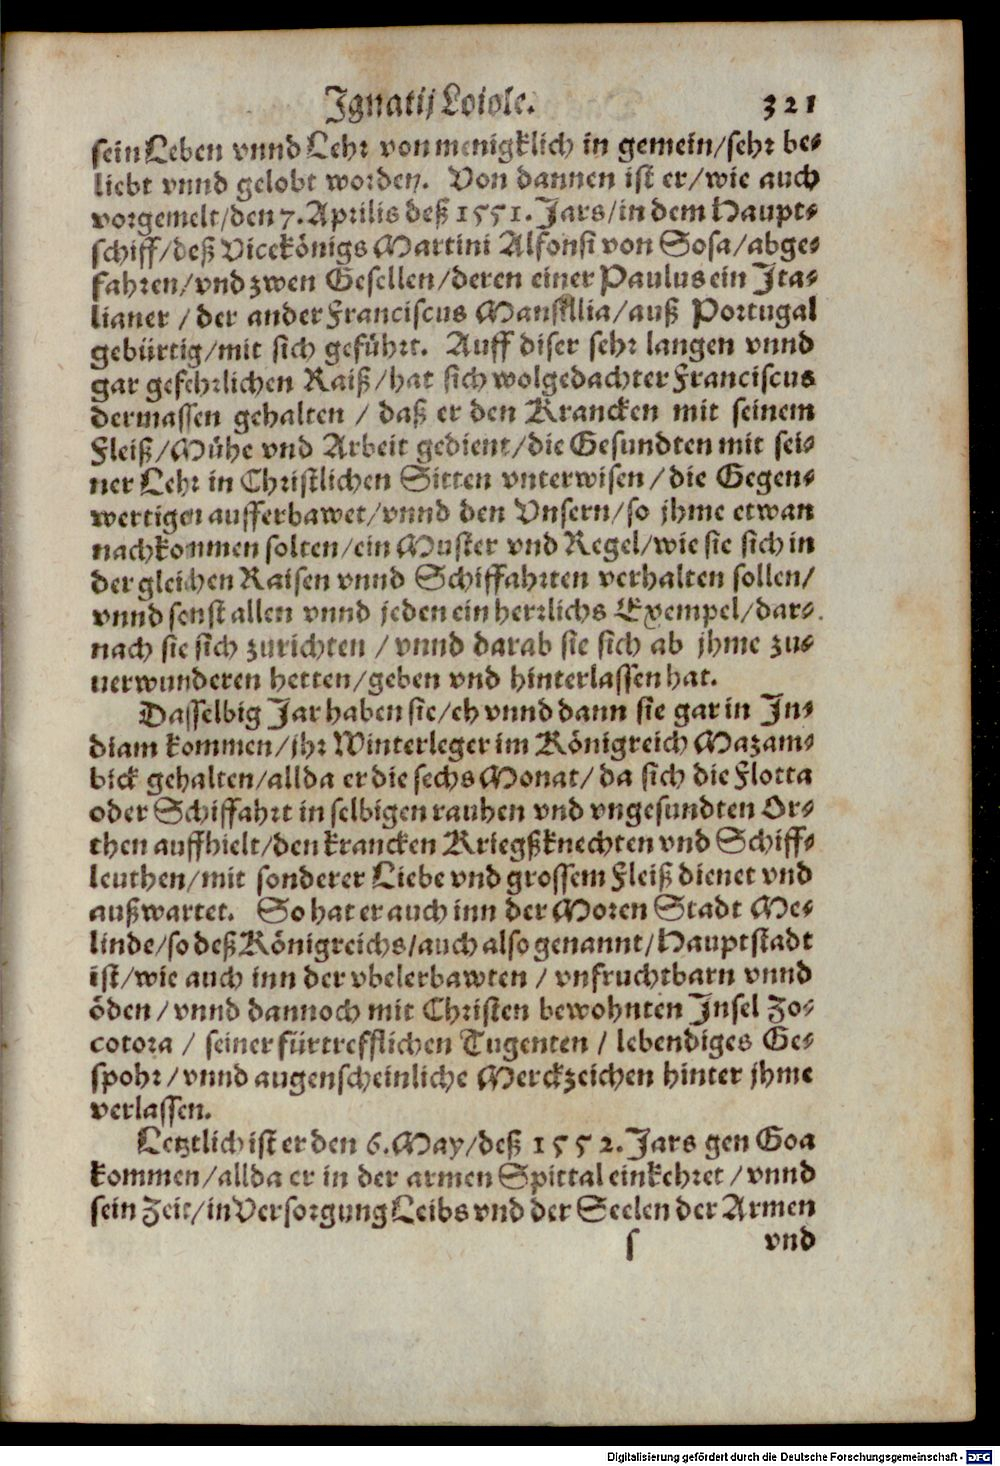 Ignatij Loiole. 321
sein Leben vnnd Lehr von menigklich in gemein/sehr be-
liebt vnnd gelobt worden. Von dannen ist er/wie auch
vorgemelt/den 7. Aprilis deß 1551. Jars/in dem Haupt-
schiff/deß Vicekönigs Martini Alfonsi von Sosa/abge-
fahren/vnd zwen Gesellen/deren einer Paulus ein Ita-
lianer / der ander Franciscus Mansillia/auß Portugal
gebürtig/mit sich geführt. Auff diser sehr langen vnnd
gar gefehrlichen Raiß/hat sich wolgedachter Franciscus
dermassen gehalten / daß er den Krancken mit seinem
Fleiß/Mühe vnd Arbeit gedient/die Gesundten mit sei-
ner Lehr in Christlichen Sitten vnterwisen / die Gegen-
wertigen aufferbawet/vnnd den Vnsern/so jhme etwan
nachkommen solten/ein Muster vnd Regel/wie sie sich in
der gleichen Raisen vnnd Schiffahrten verhalten sollen/
vnnd sonst allen vnnd jeden ein herrlichs Exempel/dar-
nach sie sich zurichten / vnnd darab sie sich ab jhme zu-
uerwunderen hetten/geben vnd hinterlassen hat.
Dasselbig Jar haben sie/eh vnnd dann sie gar in In-
diam kommen/jhr Winterleger im Königreich Mazam-
bick gehalten/allda er die sechs Monat/ da sich die Flotta
oder Schiffahrt in selbigen rauhen vnd vngesundten Or-
then auffhielt/den krancken Kriegßknechten vnd Schiff-
leuthen/mit sonderer Liebe vnd grossem Fleiß dienet vnd
außwartet. So hat er auch inn der Moren Stadt Me-
linde/so deß Königreichs/auch also genannt/Hauptstadt
ist/wie auch inn der vbelerbawten / vnfruchtbarn vnnd
öden / vnnd dannoch mit Christen bewohnten Insel Zo-
cotora / seiner fürtrefflichen Tugenten / lebendiges Ge-
spohr / vnnd augenscheinliche Merckzeichen hinter jhme
verlassen.
Letztlich ist er den 6. May/deß 1552. Jars gen Goa
kommen/allda er in der armen Spittal einkehret / vnnd
sein Zeit/in Versorgung Leibs vnd der Seelen der Armen
s vnd
Digitalisierung gefördert durch die Deutsche Forschungsgemeinschaft - DFG